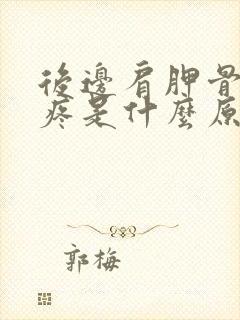 後邊肩胛骨
疼是什麼原
郭梅